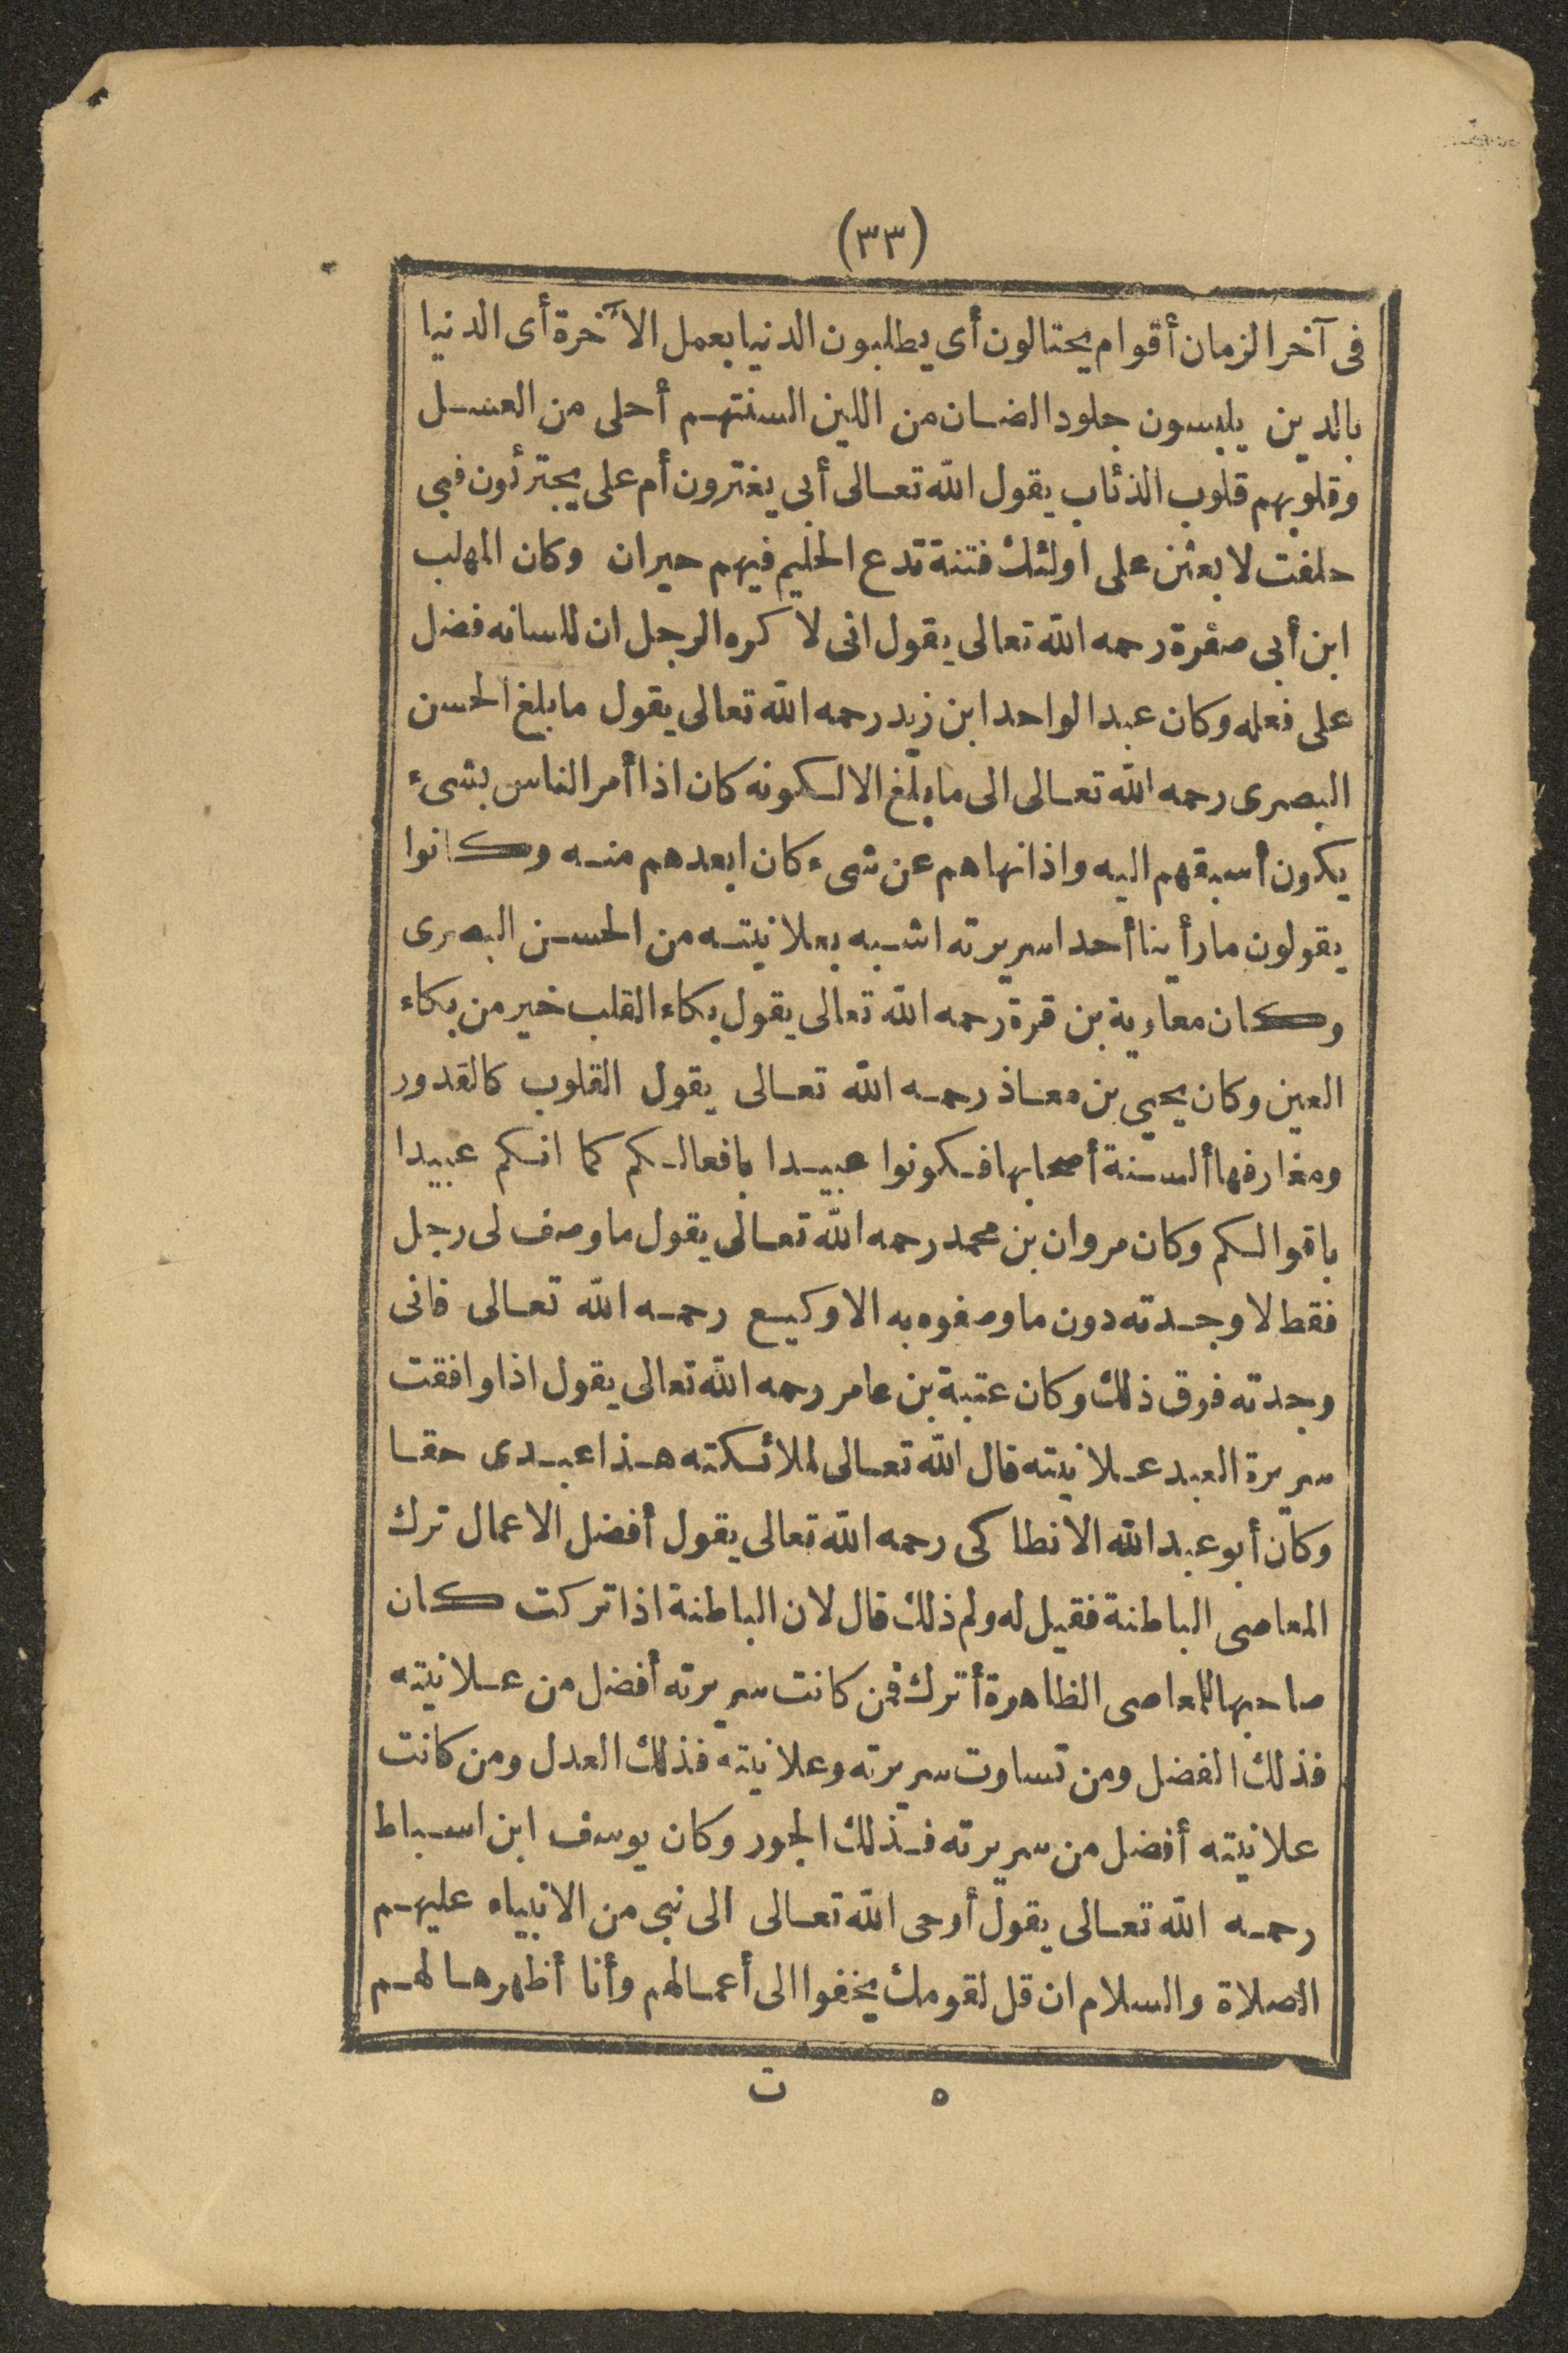 (٣٣)
فى آخر الزمان أقوام يحتالون أى يطلبون الدنيا بعمل الآخرة أى الدنيا
بالدين يلبسون جلود الضان من اللين السنتهم أحلى من العسل
وقلوبهم قلوب الذئاب يقول الله تعالى أبى يغترون أم على يجترئون فبى
حلفت لابعثن على اولئك فتنة تدع الحليم فيهم حيران وكان المهلب
ابن أبى صفرة رحمه الله تعالى يقول انى لاكره الرجل ان للسانه فضل
على فعله وكان عبد الواحد ابن زيد رحمه الله تعالى يقول ما بلغ الحسن
البصرى رحمه الله تعالى الى ما بلغ الا لكونه كان اذا أمر الناس بشىء
يكون أسبقهم اليه واذا نهاهم عن شىء كان ابعدهم منه وكانوا
يقولون ما رأينا أحدا سريرته اشبه بعلانيته من الحسن البصرى
وكان معاوية بن قرة رحمه الله تعالى يقول بكاء القلب خير من بكاء
العين وكان يحيى بن معاذ رحمه الله تعالى يقول القلوب كالقدور
ومغارفها ألسنة أصحابها فكونوا عبيدا بافعالكم كما انكم عبيدا
باقوالكم وكان مروان بن محمد رحمه الله تعالى يقول ما وصف لى رجل
فقط لا وجدته دون ما وصفوه به الا وكيع رحمه الله تعالى فانى
وجدته فوق ذلك وكان عتبة بن عامر رحمه الله تعالى يقول اذا وافقت
سريرة العبد علانيته قال الله تعالى لملائكته هذا عبدى حقا
وكان أبو عبد الله الانطاكى رحمه الله تعالى يقول أفضل الاعمال ترك
المعاصى الباطنة فقيل له ولم ذلك قال لان الباطنة اذا تركت كان
صاحبها للمعاصى الظاهرة أترك فمن كانت سريرته أفضل من علانيته
فذلك الفضل ومن تساوت سريرته وعلانيته فذلك العدل ومن كانت
علانيته أفضل من سريرته فذلك الجور وكان يوسف ابن اسباط
رحمه الله تعالى يقول أوحى الله تعالى الى نبى من الانبياء عليهم
الصلاة والسلام ان قل لقومك يخفوا الى أعمالهم وأنا أظهرها لهم
٥ ت